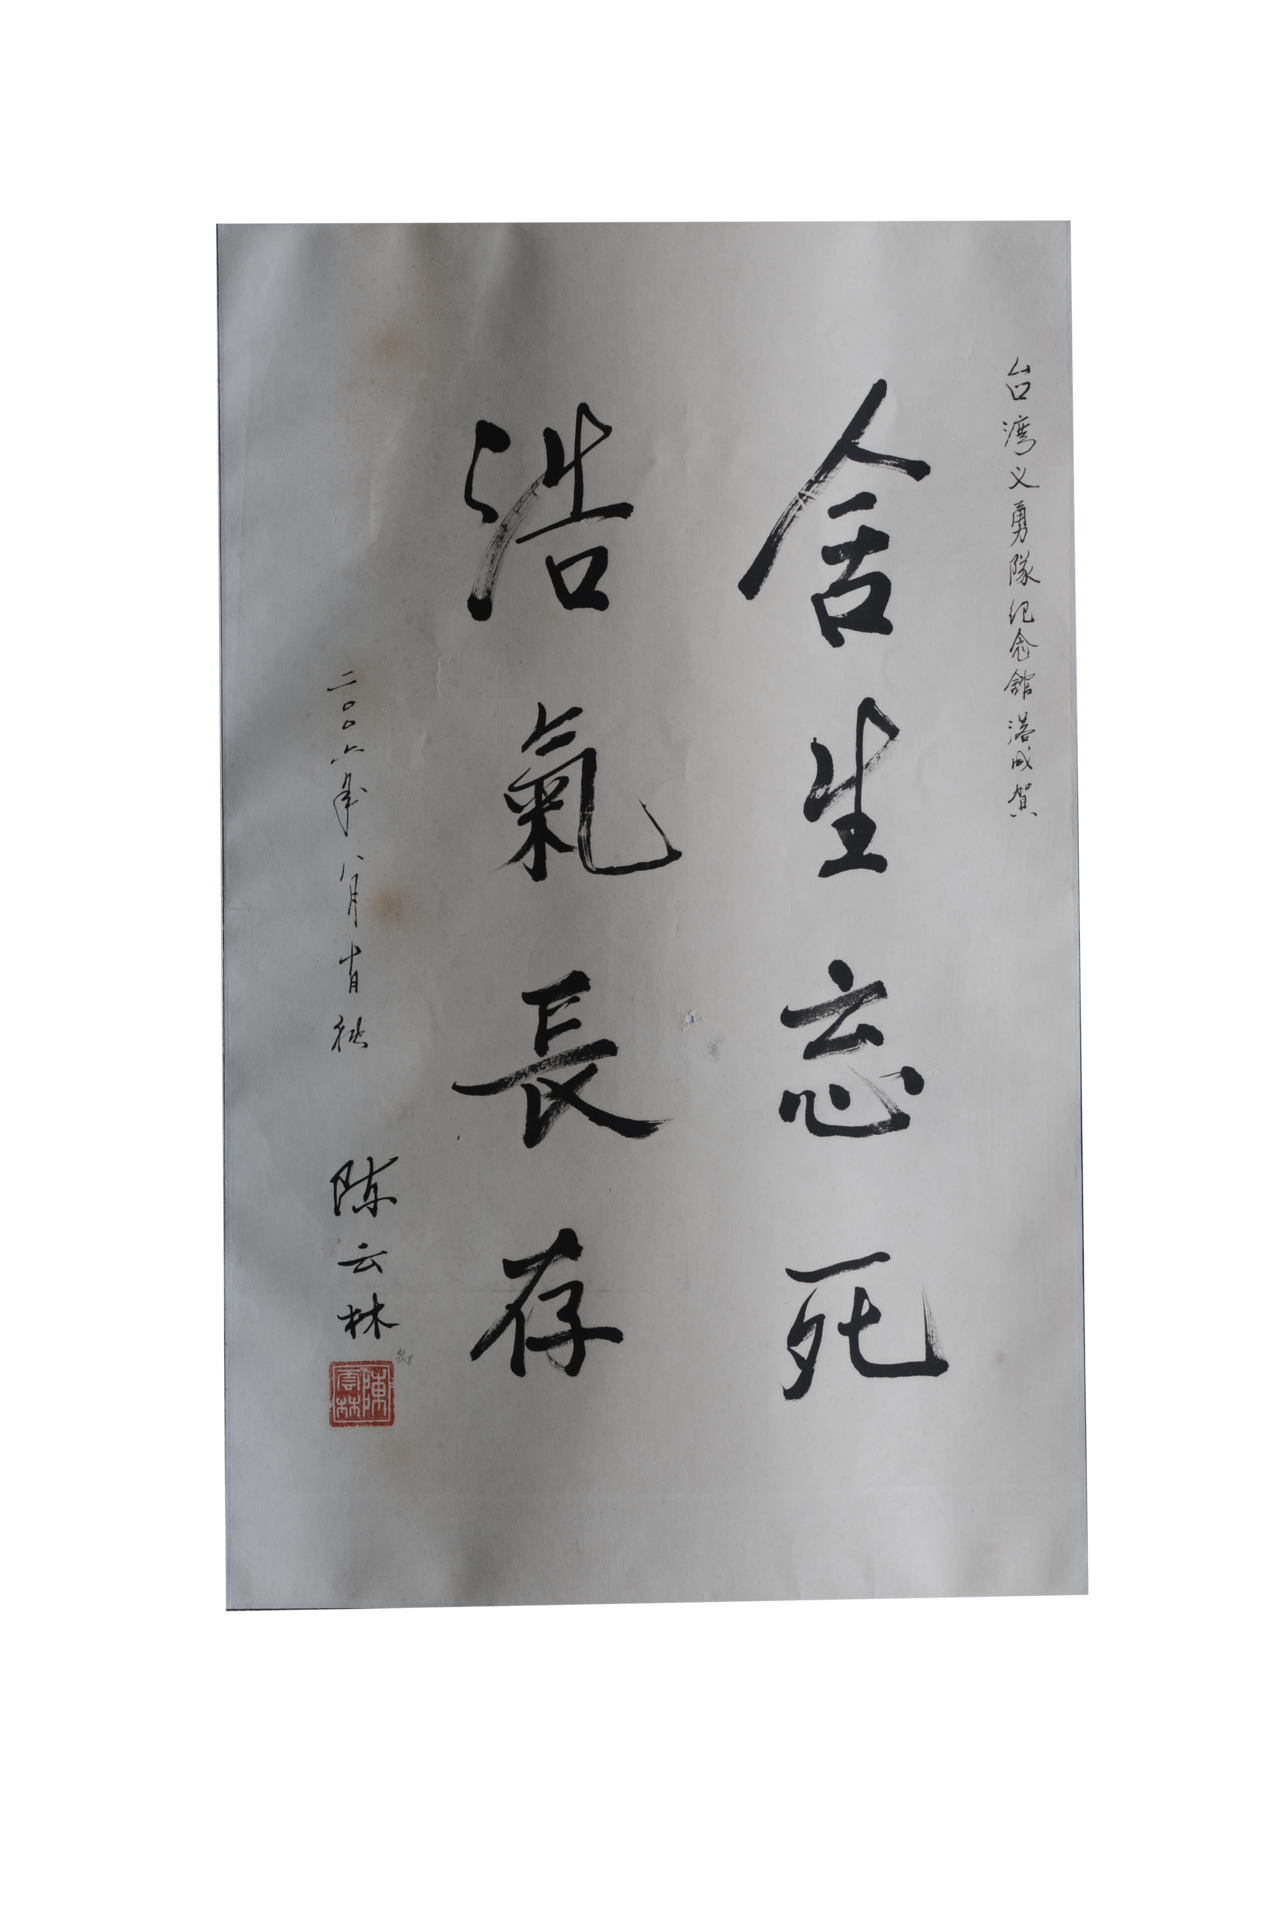 台湾义勇隊纪念館落成贺
舍生忘死
浩氣長存
二〇〇六年八月十日
陈云林
陳雲林